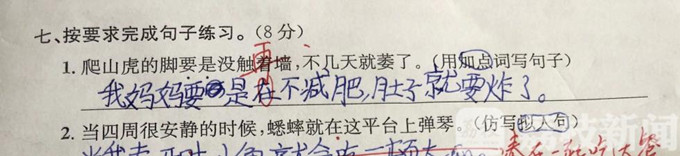 七、按要求完成句子练习。(8分)
再
1. 爬山虎的脚要是没触着墙,不几天就萎了。(用加点词写句子)
我妈妈要是在不减肥,肚子就要炸了。
2. 当四周很安静的时候,蟋蟀就在这平台上弹琴。(仿写拟人句)